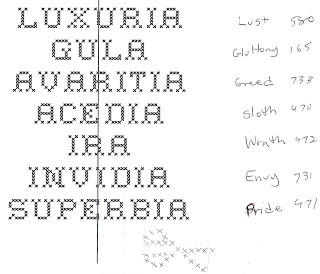 LUXURIA Lust 530
GULA Gluttony 165
AVARITIA Greed 733
ACEDIA Sloth 470
IRA Wrath 472
INVIDIA Envy 731
SUPERBIA Pride 471